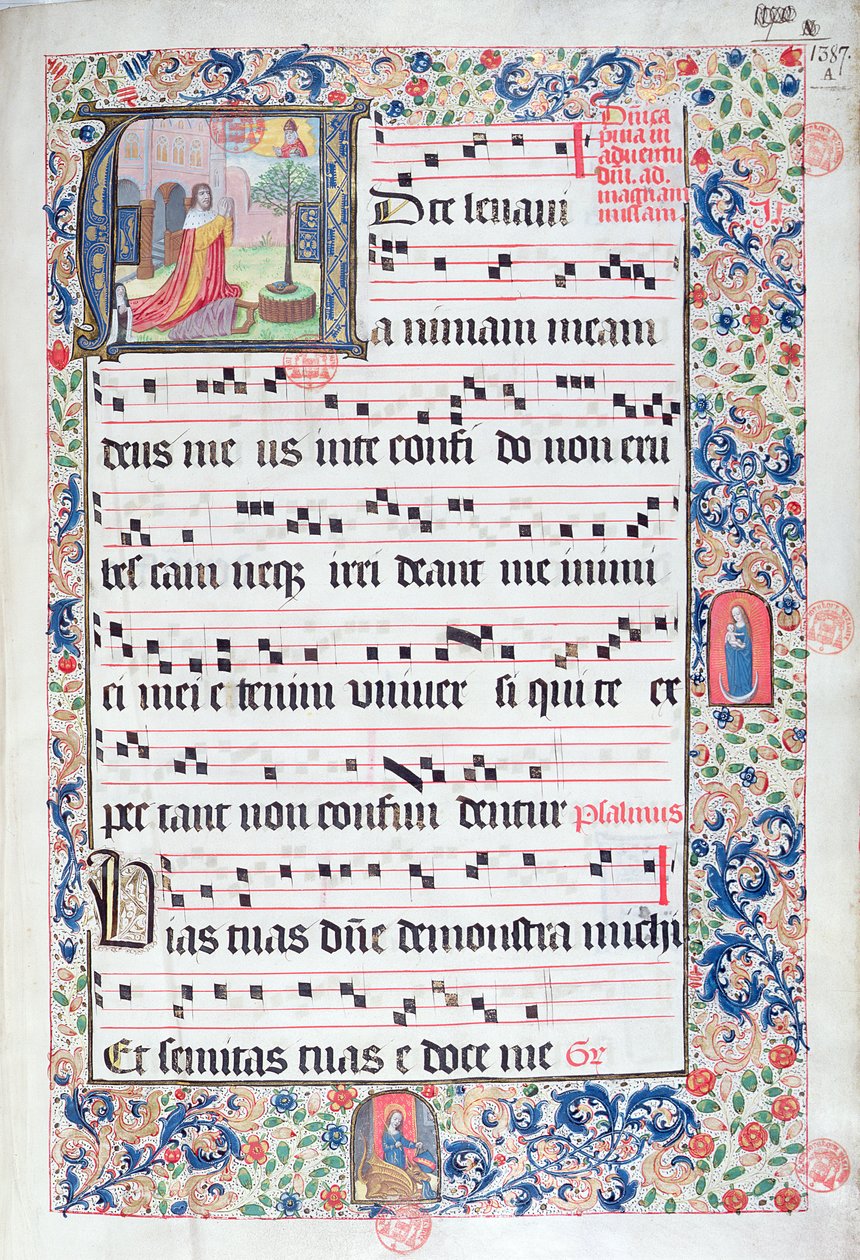 1387.
A
Dñica
p̄ma in
aduentu
dni. ad.
magnam
missam.
A Dte leuaui
a nimam meam
deus me us in te confi do non eru
bes cam neqꝫ irri deant me inimi
ci mei e tenim vniuer si qui te ex
pec tant non confun dentur psalmus
Vias tuas dñe demonstra michi
Et semitas tuas e doce me Gr